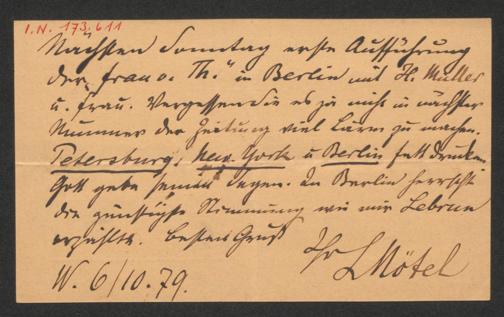 I.N. 173.611
Nächsten Sonntag erste Aufführung
der „Frau v. Th." in Berlin mit H. Müller
u. Frau. Vergessen Sie es ja nicht in nächster
Nummer der Zeitung viel Lärm zu machen.
Petersburg, New York u Berlin fett drucken
Gott gebe seinen Segen. In Berlin herrscht
die günstigste Stimmung wie mir Lebrun
erzählte. Besten Gruß
Ihr
LMötel
W. 6/10.79.